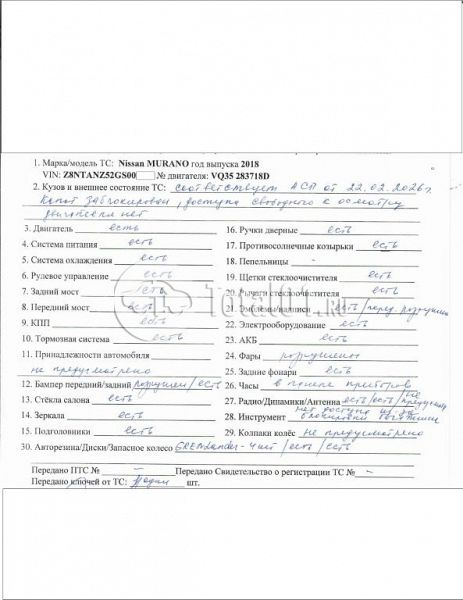 1. Марка/модель ТС: Nissan MURANO год выпуска 2018
VIN: Z8NTANZ52GS00 № двигателя: VQ35 283718D
2. Кузов и внешнее состояние ТС: соответствует АСП от 22.02.2026г.
Капот заблокирован, доступа свободного к осмотру
двигателя нет
3. Двигатель есть
4. Система питания есть
5. Система охлаждения есть
6. Рулевое управление есть
7. Задний мост есть
8. Передний мост есть
9. КПП есть
10. Тормозная система есть
11. Принадлежности автомобиля
не предусмотрено
12. Бампер передний/задний порушен/есть
13. Стёкла салона есть
14. Зеркала есть
15. Подголовники есть
16. Ручки дверные есть
17. Противосолнечные козырьки есть
18. Пепельницы –
19. Щетки стеклоочистителя есть
20. Рычаги стеклоочистителя есть
21. Эмблемы/надписи есть/перед.
22. Электрооборудование есть
23. АКБ есть
24. Фары порушены
25. Задние фонари есть
26. Часы в панели приборов
27. Радио/Динамики/Антенна есть/есть/не предусм
28. Инструмент нет доступа из-за
29. Колпаки колёс не предусмотрено
30. Авторезина/Диски/Запасное колесо GREMLander-4шт/есть/есть
Передано ПТС № – Передано Свидетельство о регистрации ТС № –
Передано ключей от ТС: один шт.
Total01.ru